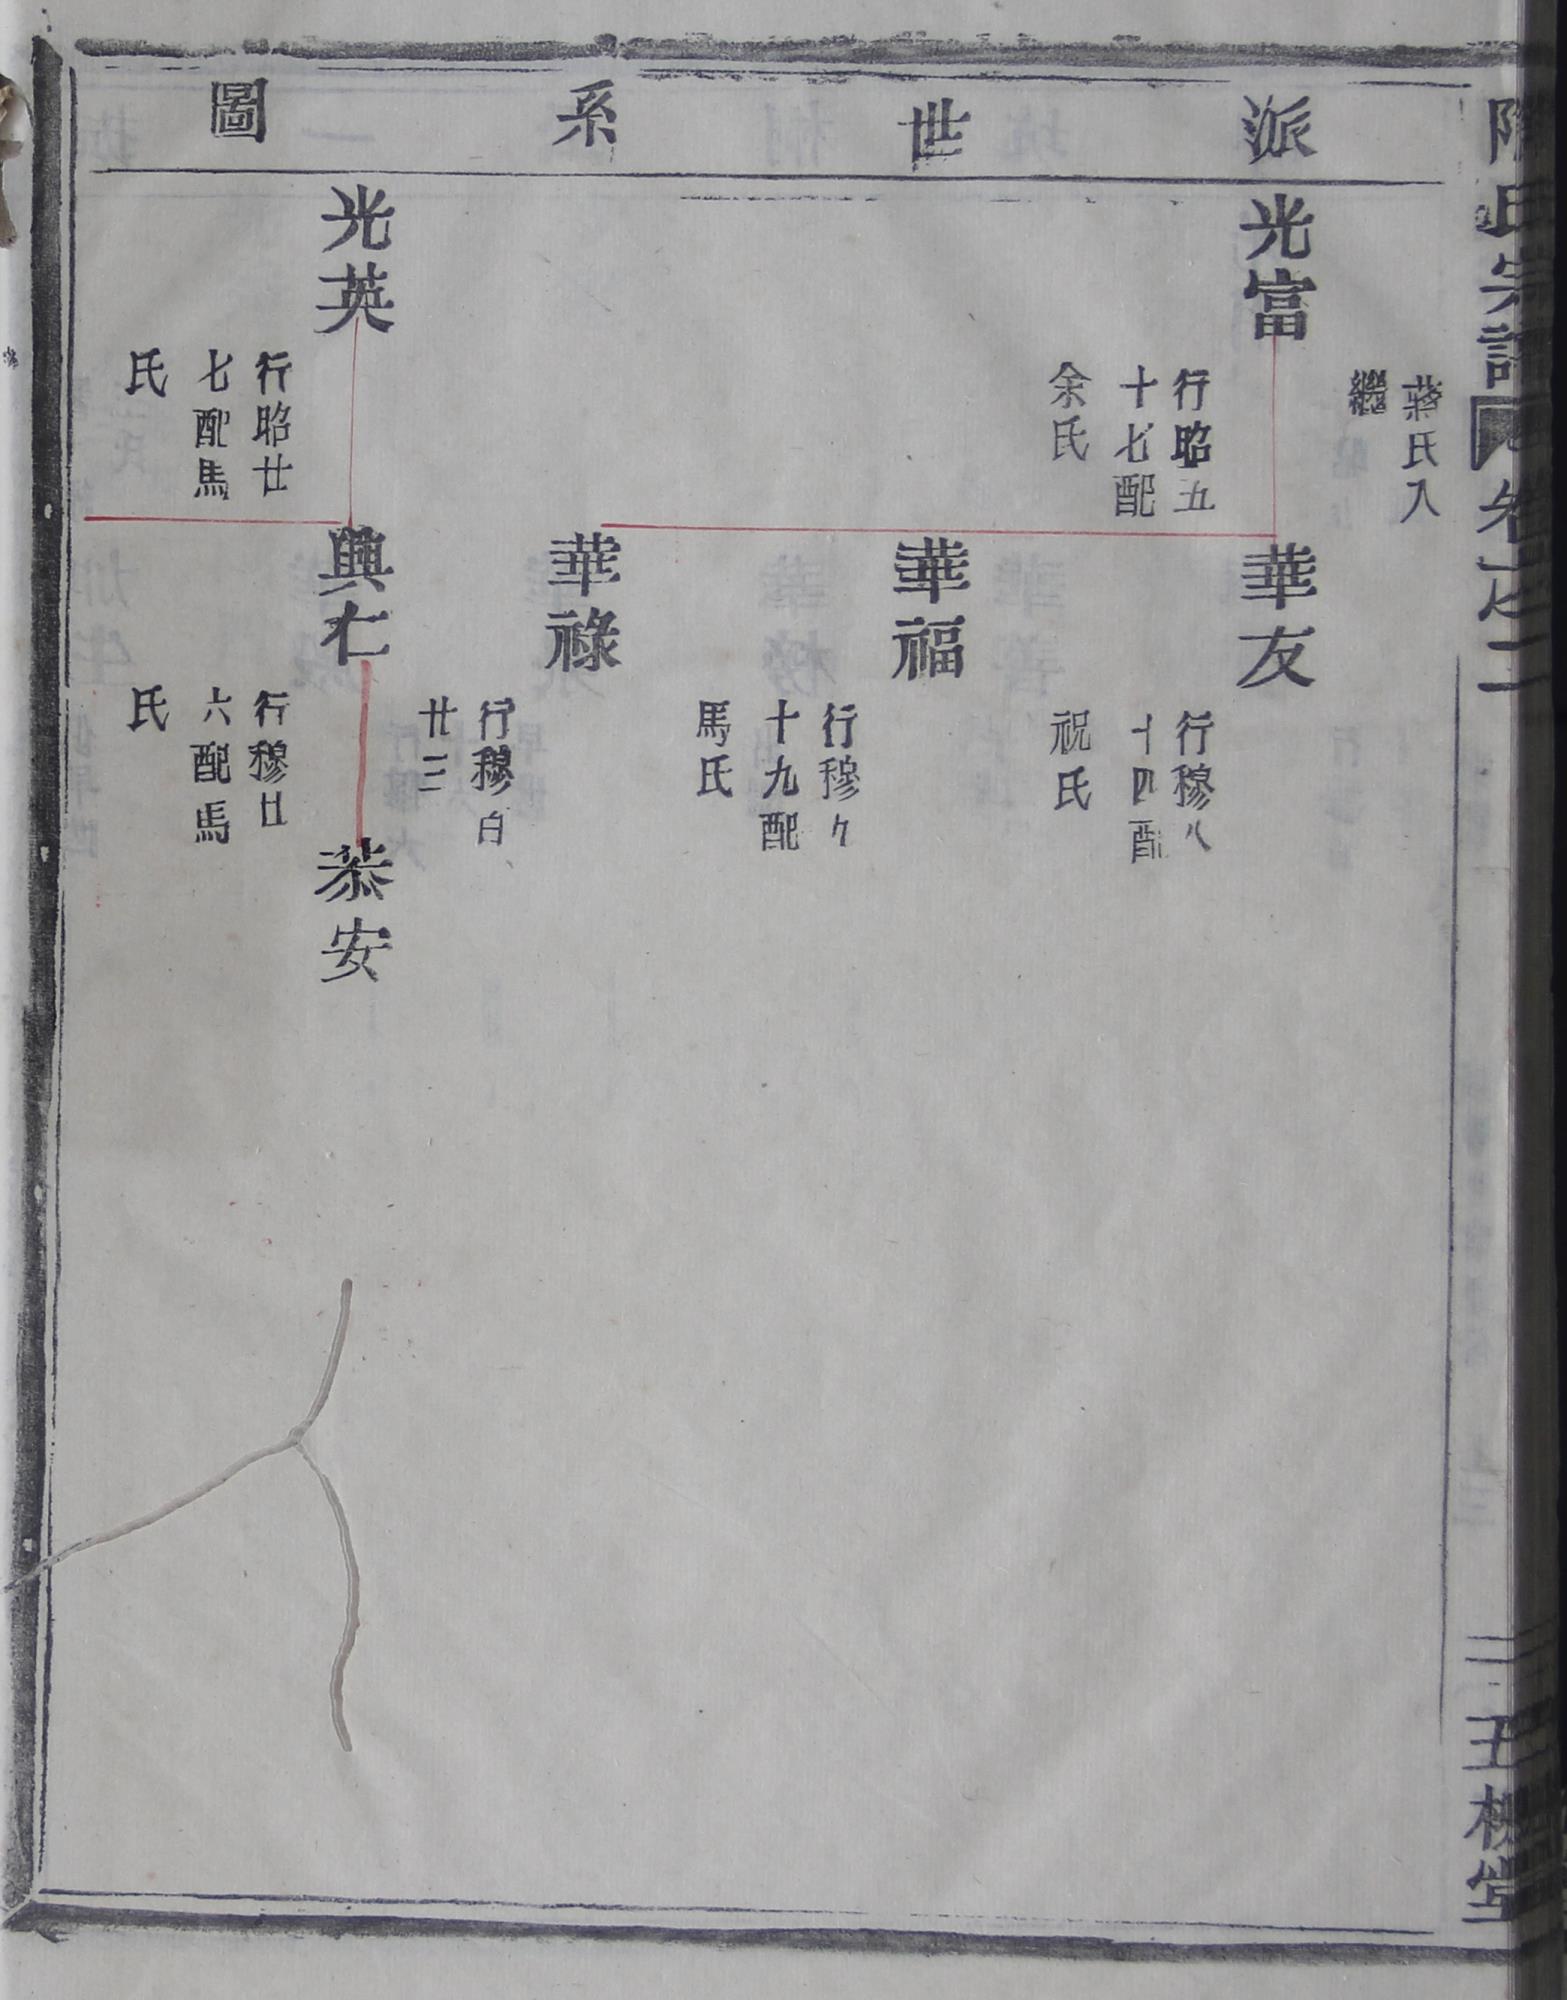 宗譜卷之二
三槐堂
派世系圖
蔣氏入
繼
光富
行昭五
十七配
余氏
光英
行昭廿
七配馬
氏
華友
行穆八
十四配
祝氏
華福
行穆九
十九配
馬氏
華祿
行穆百
廿三
興仁
行穆廿
六配馬
氏
恭安